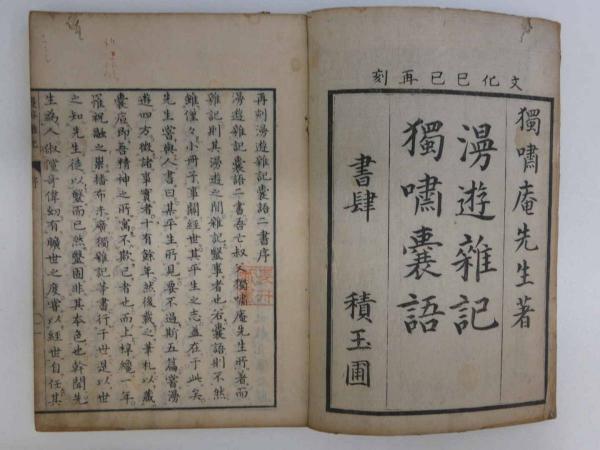 文化己巳再刻
獨嘯庵先生著
漫遊雜記
獨嘯嚢語
書肆 積玉圃
再刻漫遊雜記嚢語二書序
漫遊雜記嚢語二書吾亡叔父獨嘯庵先生所著而
雜記則其漫遊之間雜記毉事者也若嚢語則不然
雖僅々小冊子事關經世其平生之志盖在于此矣
先生嘗與人書曰其平生所見要不過斯五篇嘗漫
遊四方徴諸事實者十有餘年然後載之筆札以藏
嚢底即吾精神之所寓不欺己者也而上梓纔一年
罹祝融之災播布未廣獨雜記等書行于世是以世
之知先生徒以毉而已然毉固非其本色也幹聞先
生爲人俶儻奇偉幼有曠世之度嘗以經世自任其